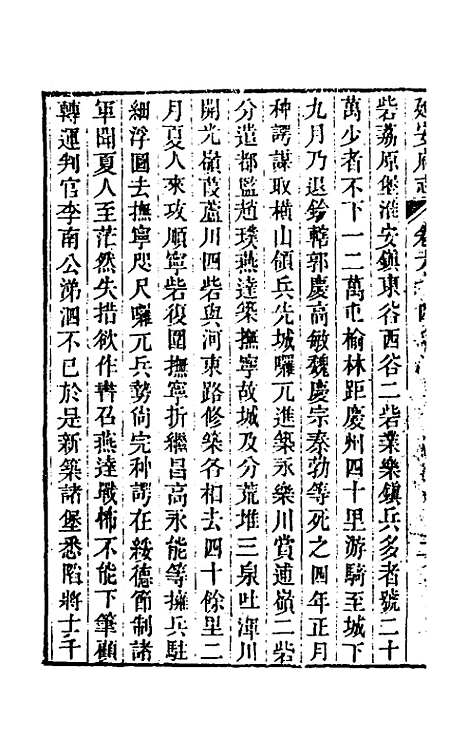 延安府志
砦荔原堡淮安鎮東谷西谷二砦業樂鎮兵多者號二十
萬少者不下一二萬屯榆林距慶州四十里游騎至城下
九月乃退鈐轄郭慶高敏魏慶宗秦勃等死之四年正月
种諤謀取橫山領兵先城囉兀進築永樂川賞逋嶺二砦
分遣都監趙璞燕達築撫寧故城及分荒堆三泉吐渾川
開光嶺葭蘆川四砦與河東路修築各相去四十餘里二
月夏人來攻順寧砦復圍撫寧折繼昌高永能等擁兵駐
細浮圖去撫寧咫尺囉兀兵勢尚完种諤在綏德節制諸
軍聞夏人至茫然失措欲作書召燕達戰怖不能下筆顧
轉運判官李南公涕泗不已於是新築諸堡悉陷將士千